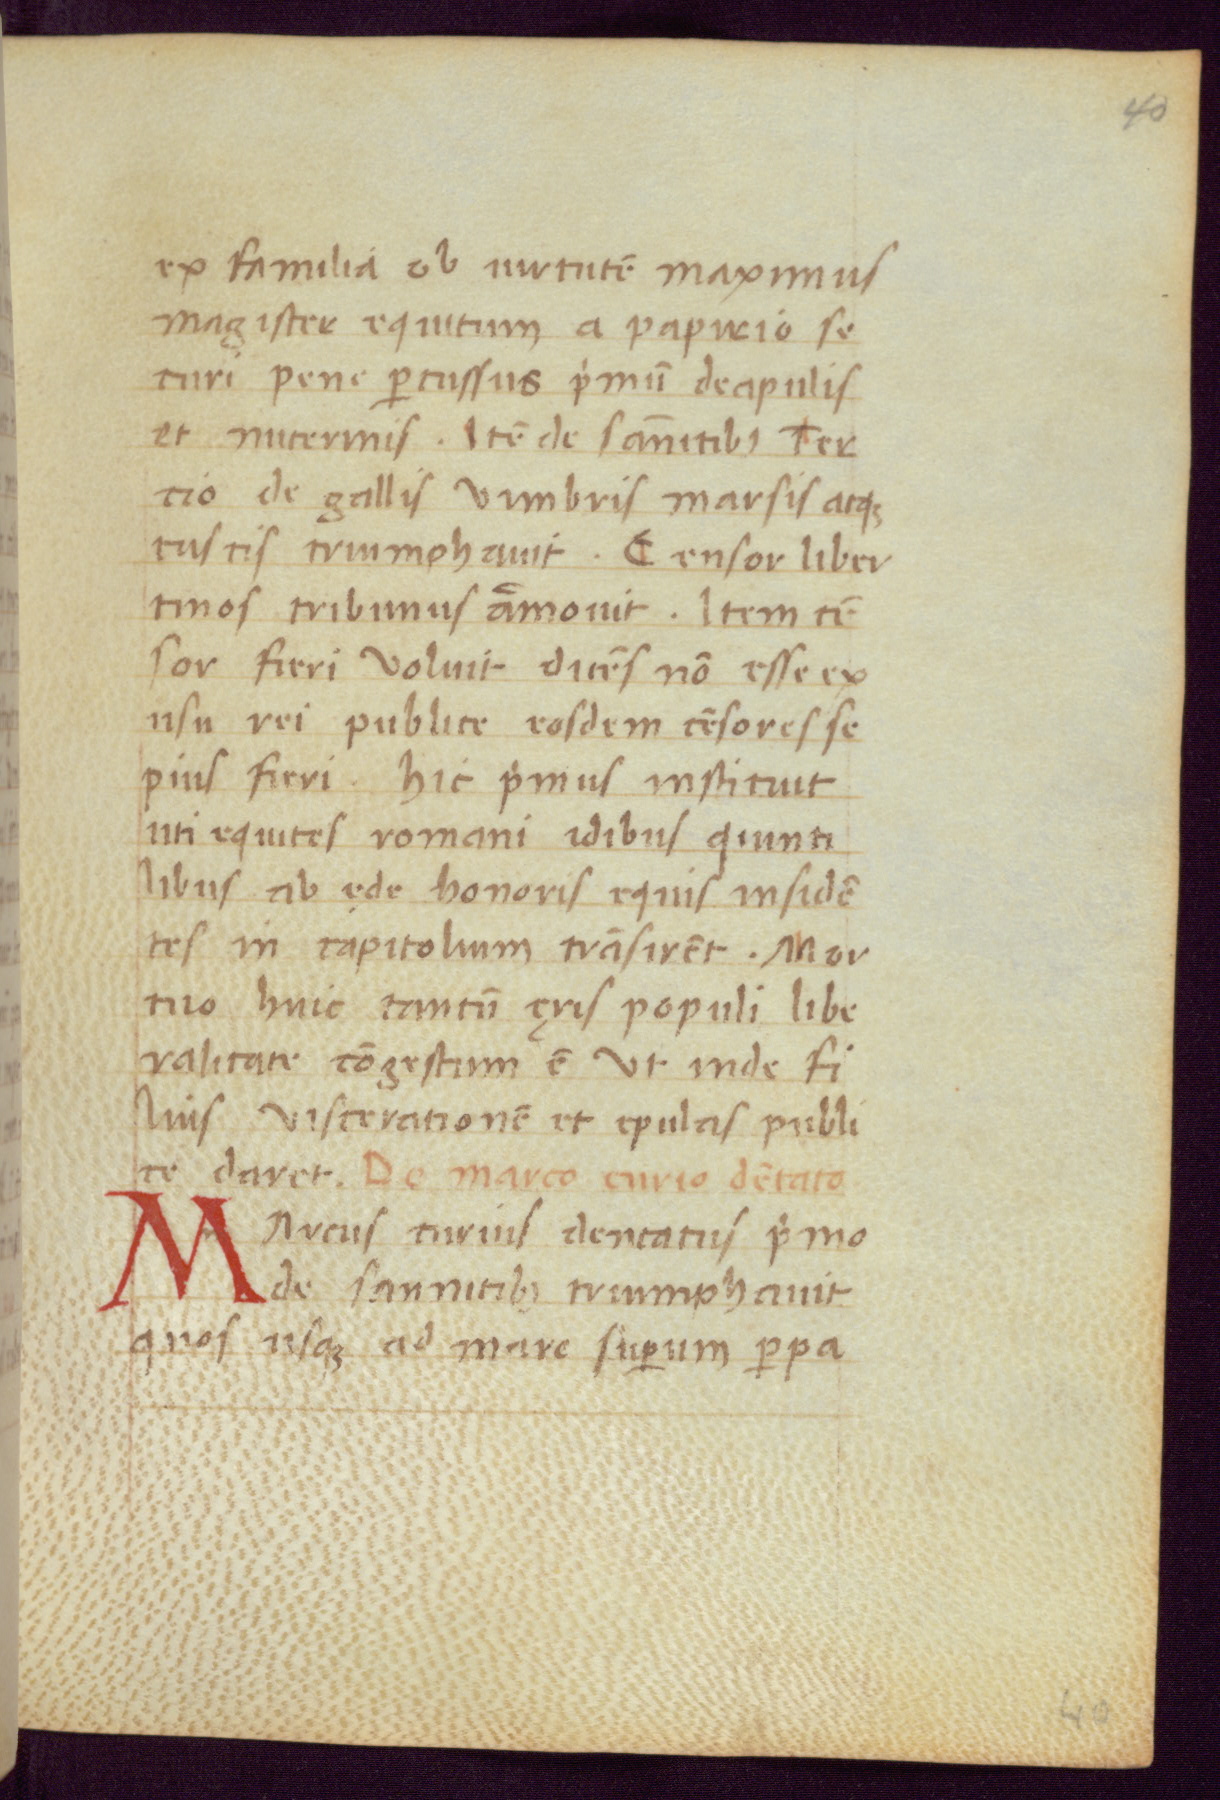 40
ex familia ob uirtutē maximus
magister equitum a papirio se
curi pene ꝑcussus pͥmū deapulis
et nucermis . Itē de san̄itibꝫ Ter
cio de gallis Vmbris marsis atqꝫ
tuscis triumphauit . Censor liber
tinos tribunus āmouit . Item cē
sor fieri Voluit dicēs nō esse ex
usu rei publice eosdem cēsores se
pius fieri . hic pͥmus instituit
uti equites romani idibus quinti
libus ab ede honoris equis insidē
tes in capitolium trāsirēt . Mor
tuo huic tantū ęris populi libe
ralitate cōgestum ē Vt inde fi
lius Viscerationē et epulas publi
ce daret . De marco curio dētato
MArcus curius dentatus pͥmo
de sannitibꝫ triumphauit
quos usqꝫ ad mare suꝑum ꝑpa
40